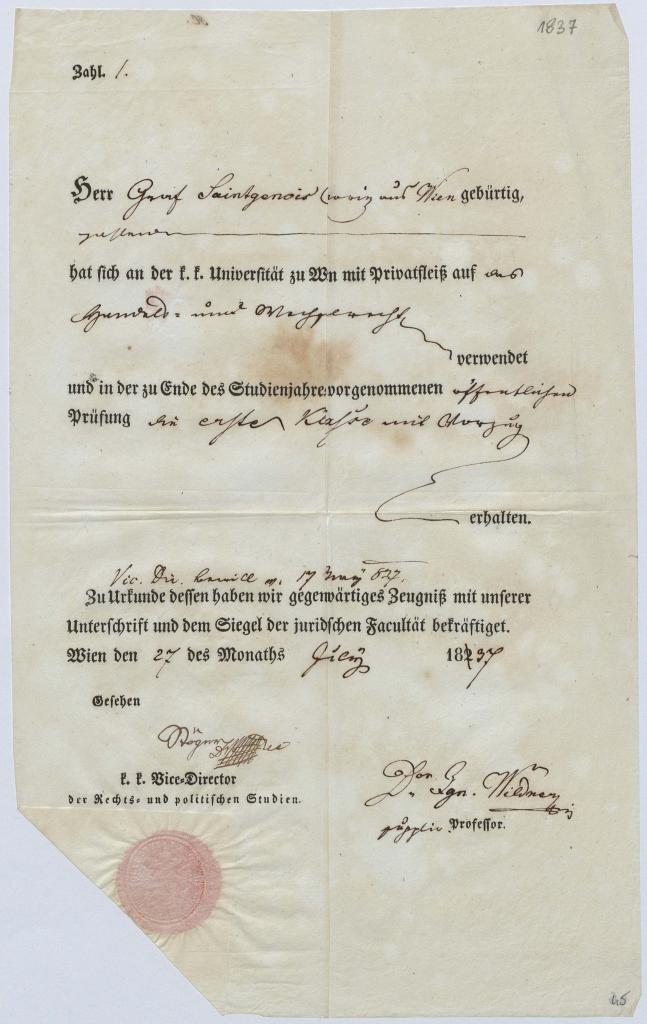 1837
Zahl. 1.
Herr Graf Saintgenois Moriz aus Wien gebürtig,
hat sich an der k. k. Universität zu Wn mit Privatfleiß auf das
Handels- und Wechselrecht
verwendet
und in der zu Ende des Studienjahres vorgenommenen öffentlichen
Prüfung die erste Klasse mit Vorzug
erhalten.
Vic. Dir. bewill v. 17 May 837.
Zu Urkunde dessen haben wir gegenwärtiges Zeugniß mit unserer
Unterschrift und dem Siegel der juridschen Facultät bekräftiget.
Wien den 27 des Monaths July 1837
Gesehen
Stöger
k. k. Vice-Director
der Rechts- und politischen Studien.
Dor Ign. Wildner
supplir Professor.
45